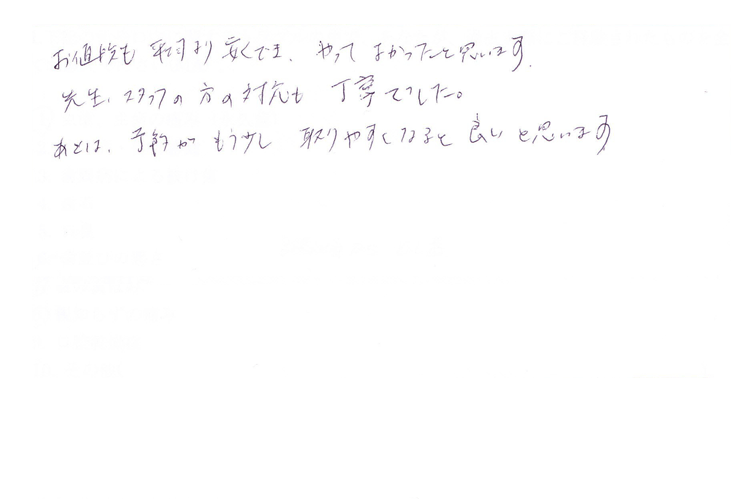 お値段も 平均より 安くでき、やって よかったと思います。
先生、スタッフの 方の対応も 丁寧でした。
あとは、予約が もう少し 取りやすくなると 良いと思います